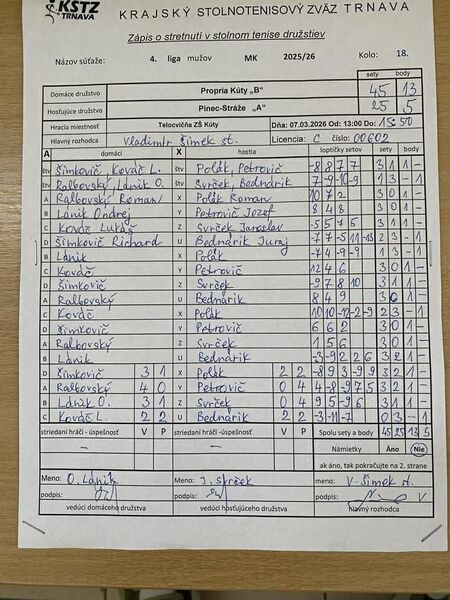 KSTZ
TRNAVA
KRAJSKÝ STOLNOTENISOVÝ ZVÄZ TRNAVA
Zápis o stretnutí v stolnom tenise družstiev
Názov súťaže: 4. liga mužov MK 2025/26 Kolo: 18.
sety body
Domáce družstvo Propria Kúty „B" 45 13
Hosťujúce družstvo Pinec-Stráže „A" 25 5
Hracia miestnosť Telocvičňa ZŠ Kúty Dňa: 07.03.2026 Od: 13:00 Do: 15:50
Hlavný rozhodca Vladimír Šimek st. Licencia: C číslo: 00602
A domáci X hostia loptičky setov sety body
štv Šimkovič, Kováč L. štv Polák, Petrovič -8 8 7 7 3 1 1 -
štv Ralbovský, Lánik O. štv Svrček, Bednárik 7 -9 -10 -9 1 3 - 1
A Ralbovský Roman X Polák Roman 10 7 2 3 0 1 -
B Lánik Ondrej Y Petrovič Jozef 8 4 8 3 0 1 -
C Kováč Lukáš Z Svrček Jaroslav -5 5 7 5 3 1 1 -
D Šimkovič Richard U Bednárik Juraj -7 7 -5 11 -13 2 3 - 1
B Lánik X Polák -7 4 -9 -9 1 3 - 1
C Kováč Y Petrovič 12 4 6 3 0 1 -
D Šimkovič Z Svrček -9 7 8 10 3 1 1 -
A Ralbovský U Bednárik 8 4 9 3 0 1 -
C Kováč X Polák 10 10 -12 -2 -9 2 3 - 1
D Šimkovič Y Petrovič 6 6 2 3 0 1 -
A Ralbovský Z Svrček 1 5 6 3 0 1 -
B Lánik U Bednárik -3 -9 2 2 6 3 2 1 -
D Šimkovič 3 1 X Polák 2 2 -8 9 3 -9 9 3 2 1 -
A Ralbovský 4 0 Y Petrovič 0 4 4 -8 -9 7 5 3 2 1 -
B Lánik O. 3 1 Z Svrček 0 4 9 5 -9 6 3 1 1 -
C Kováč L. 2 2 U Bednárik 2 2 -3 -11 -7 0 3 - 1
striedaní hráči - úspešnosť V P striedaní hráči - úspešnosť V P Spolu sety a body 45 25 13 5
- - Námietky Áno Nie
ak áno, tak pokračujte na 2. strane
Meno: O. Lánik Meno: J. Svrček meno: V. Šimek st.
podpis: podpis: podpis:
vedúci domáceho družstva vedúci hosťujúceho družstva hlavný rozhodca